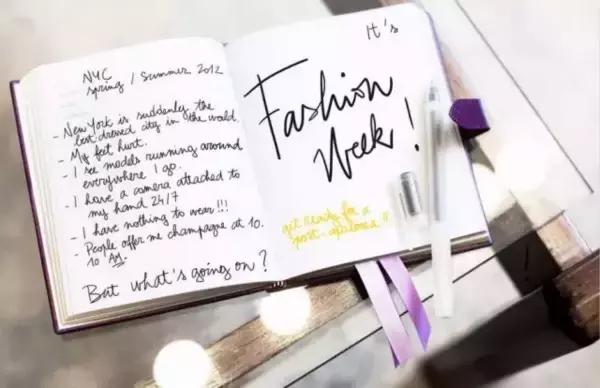 NYC
spring / summer 2012
- New York is suddenly the
best dressed city in the world.
- My feet hurt.
- I see models running around
everywhere I go.
- I have a camera attached to
my hand 24/7
- I have nothing to wear!!!
- People offer me champagne at 10.
10 AM.
But what's going on?
It's
Fashion
Week!
get ready for a
post-